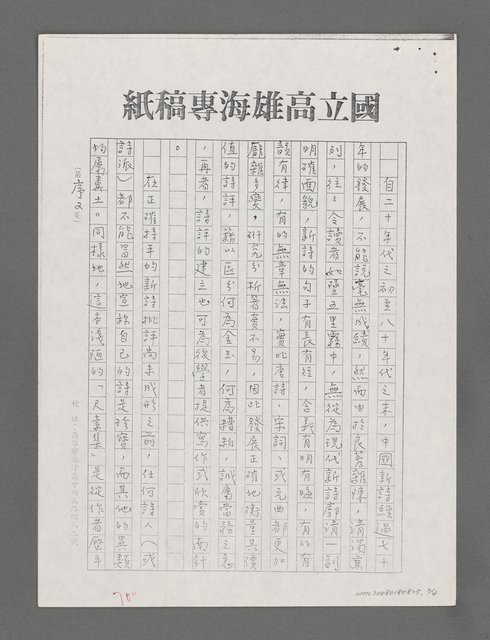 國立高雄海專稿紙
自二十年代之初至八十年代之末，中國新詩經過七十
年的發展，不能說毫無成績，然而由於良莠雜陳，清濁并
列，往往令讀者如墮五里霧中，無從為現代新詩廓清一詞
明確面貌，新詩的句子有長有短，含義有明有晦，有的有
韻有律，有的無章無法，實比唐詩、宋詞、或元曲都更加
龐雜多變，研究分析著實不易，因此發展正確地衡量其價
值的詩評，藉以區分何為金玉，何為糟粕，誠屬當務之急
，再者，詩評的建立也可為後學者提供寫作或欣賞的南針
。
在正確持平的新詩批評尚未成形之前，任何詩人（或
詩派）都不能冒然地宣稱自己的詩是珍寶，而其他的異類
均屬糞土。同樣地，這本淺陋的「尺素集」是從作者歷年
（第 序2 頁）
校址：高雄市
70%
NMTL20080180815